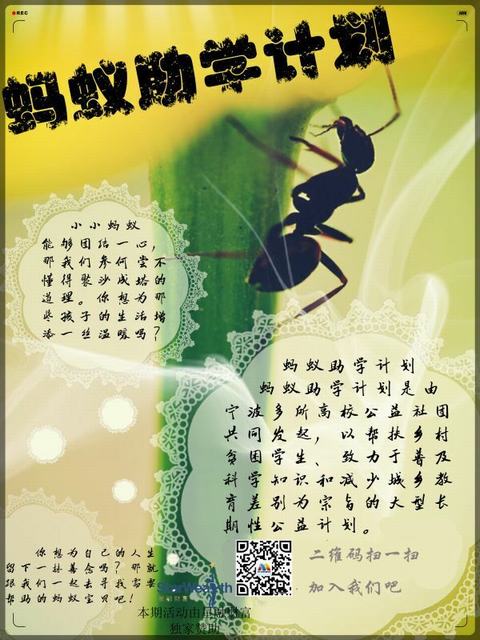 REC
蚂蚁助学计划
小小蚂蚁
能够团结一心，
那我们参何尝不
懂得聚沙成塔的
道理。你想为那
些孩子的生活增
添一丝温暖吗？
蚂蚁助学计划
蚂蚁助学计划是由
宁波多所高校公益社团
共同发起，以帮扶乡村
贫困学生、致力于普及
科学知识和减少城乡教
育差别为宗旨的大型长
期性公益计划。
你想为自己的人生
留下一抹善念吗？那就
跟我们一起去寻找需要
帮助的蚂蚁宝贝吧！
二维码扫一扫
加入我们吧
本期活动由星融财富
独家赞助